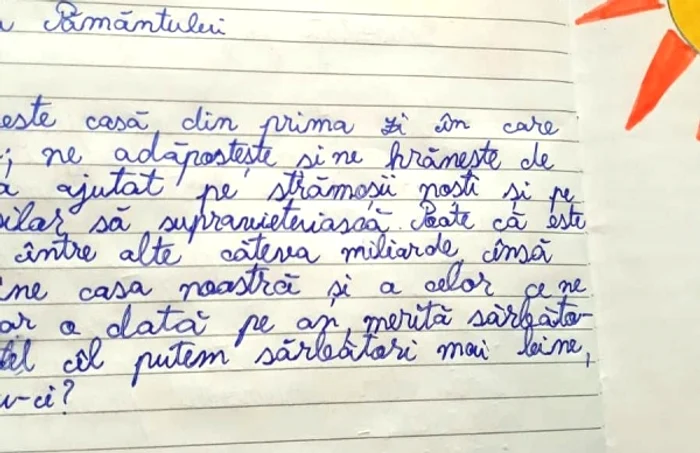 Pământului
este casă, din prima zi în care
; ne adăpostește si ne hrănește de
ajutat pe strămoșii nosti și pe
să supravietuiască. Poate că este
între alte câteva miliarde, însă
casa noastră și a celor ce ne
o dată pe an, merită sărbăto-
cîl putem sărbători mai bine,
-ci?